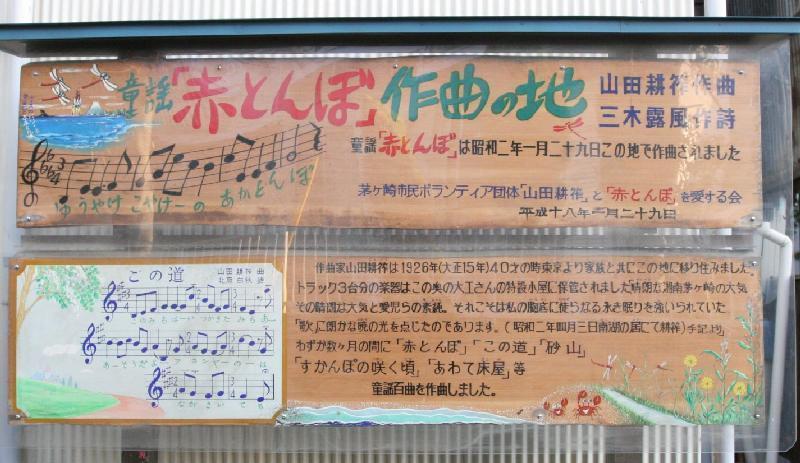 童謡「赤とんぼ」作曲の地
山田耕筰作曲
三木露風作詩
童謡「赤とんぼ」は昭和二年一月二十九日この地で作曲されました
ゆうやけ こやけーの あかとんぼ
茅ヶ崎市民ボランティア団体「山田耕筰」と「赤とんぼ」を愛する会
平成十八年一月二十九日
この道
山田耕筰 曲
北原白秋 詩
このみちはーいつかきたみちあー
あーそうだよーアカシヤーのーは
ながさいてる
作曲家山田耕筰は1926年(大正15年)40才の時東京より家族と共にこの地に移り住みました。
トラック3台分の楽器はこの奥の大工さんの特設小屋に保管されました晴朗な湘南茅ヶ崎の大気
その晴朗な大気と愛児らの素純。それこそは私の胸底に使うなる永き眠りを強いられていた
「歌」に朗かな暁の光を点じたのであります。(昭和二年四月三日南湖の居にて耕筰)手記より
わずか数ヶ月の間に「赤とんぼ」「この道」「砂山」
「すかんぽの咲く頃」「あわて床屋」等
童謡百曲を作曲しました。